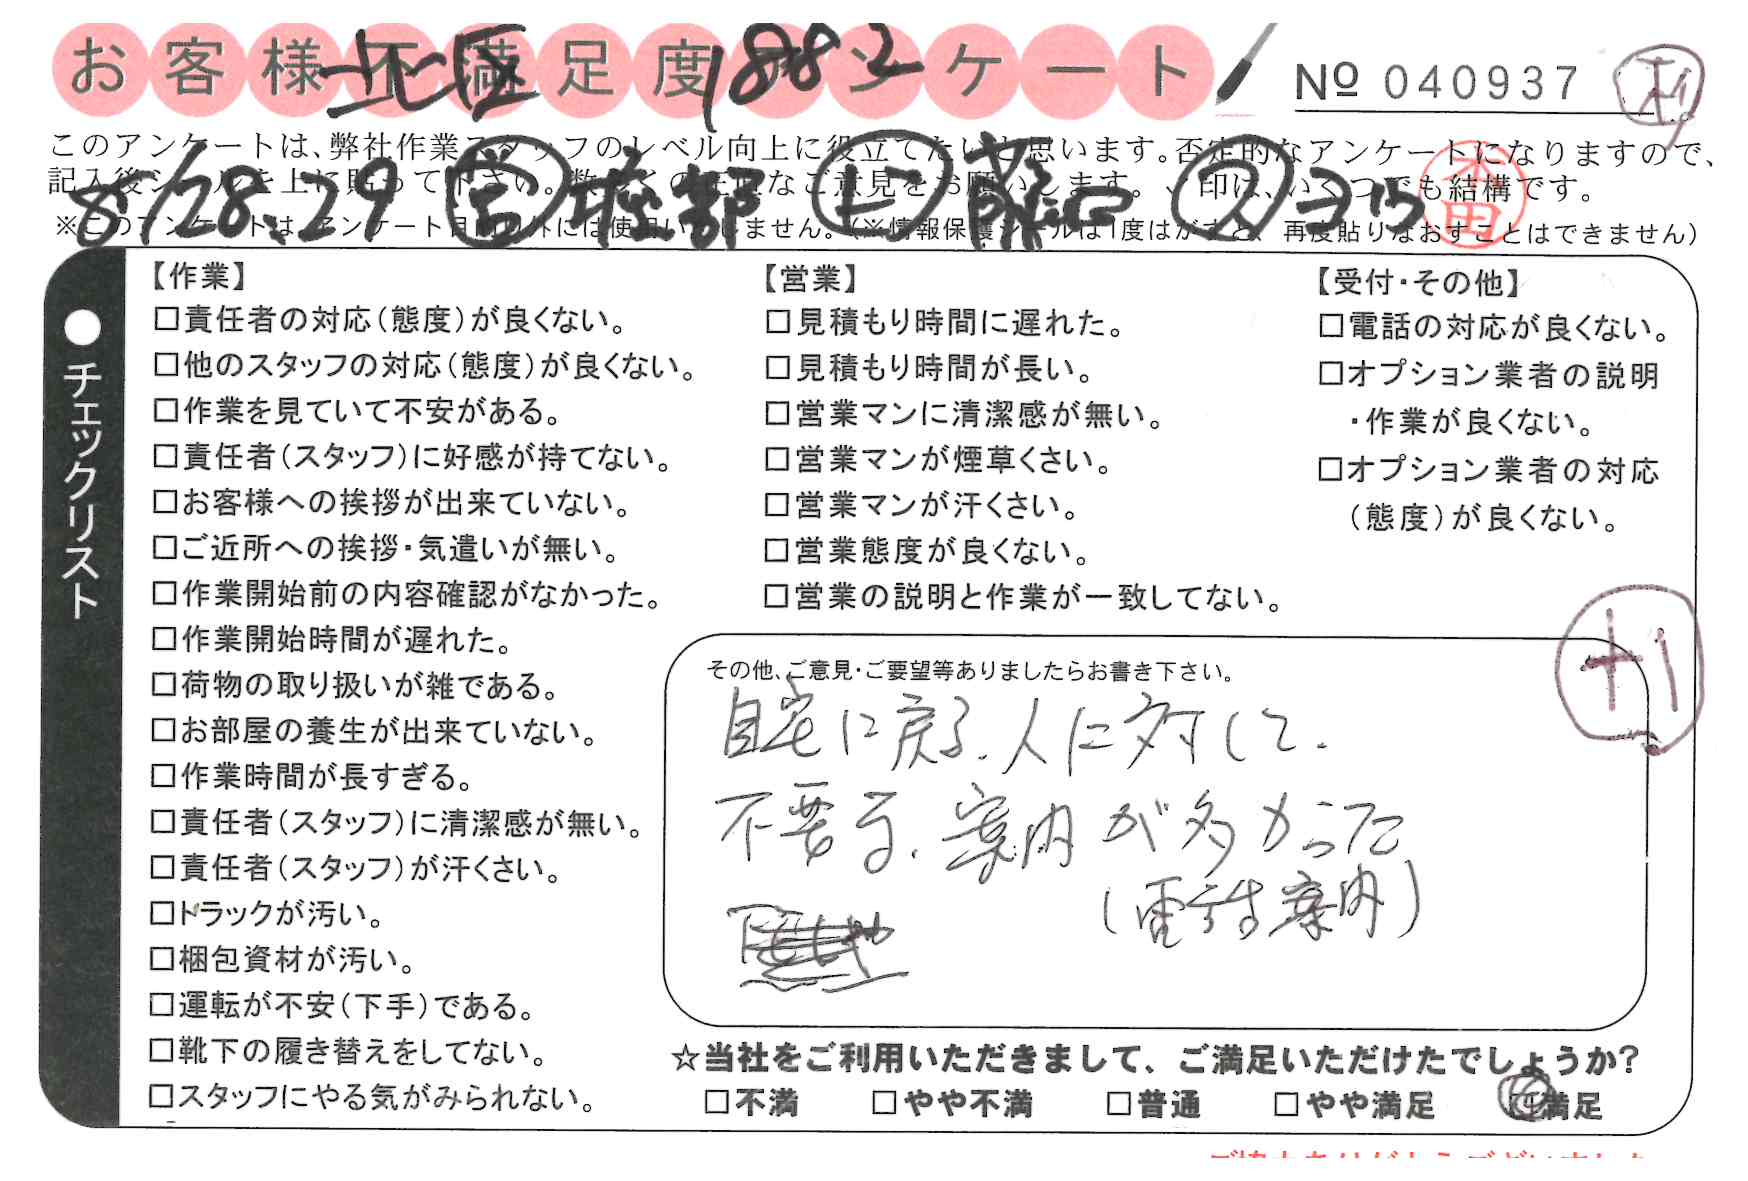 お客様不満足度アンケート
北区 1882
№ 040937
このアンケートは、弊社作業スタッフのレベル向上に役立てたいと思います。否定的なアンケートになりますので、
記入後シールを上に貼って下さい。数多くの正直なご意見をお願いします。、印は、いくつでも結構です。
8/28.29 営 ヒ ス
本田
※このアンケートは、アンケート目的以外には使用いたしません。(※情報保護シールは1度はがすと、再度貼りなおすことはできません)
●チェックリスト
【作業】
□責任者の対応(態度)が良くない。
□他のスタッフの対応(態度)が良くない。
□作業を見ていて不安がある。
□責任者(スタッフ)に好感が持てない。
□お客様への挨拶が出来ていない。
□ご近所への挨拶・気遣いが無い。
□作業開始前の内容確認がなかった。
□作業開始時間が遅れた。
□荷物の取り扱いが雑である。
□お部屋の養生が出来ていない。
□作業時間が長すぎる。
□責任者(スタッフ)に清潔感が無い。
□責任者(スタッフ)が汗くさい。
□トラックが汚い。
□梱包資材が汚い。
□運転が不安(下手)である。
□靴下の履き替えをしてない。
□スタッフにやる気がみられない。
【営業】
□見積もり時間に遅れた。
□見積もり時間が長い。
□営業マンに清潔感が無い。
□営業マンが煙草くさい。
□営業マンが汗くさい。
□営業態度が良くない。
□営業の説明と作業が一致してない。
【受付・その他】
□電話の対応が良くない。
□オプション業者の説明
・作業が良くない。
□オプション業者の対応
(態度)が良くない。
+1
その他、ご意見・ご要望等ありましたらお書き下さい。
自宅に戻る、人に対して、
不要な、案内が多かった
(電話案内)
☆当社をご利用いただきまして、ご満足いただけたでしょうか?
□不満 □やや不満 □普通 □やや満足 □満足